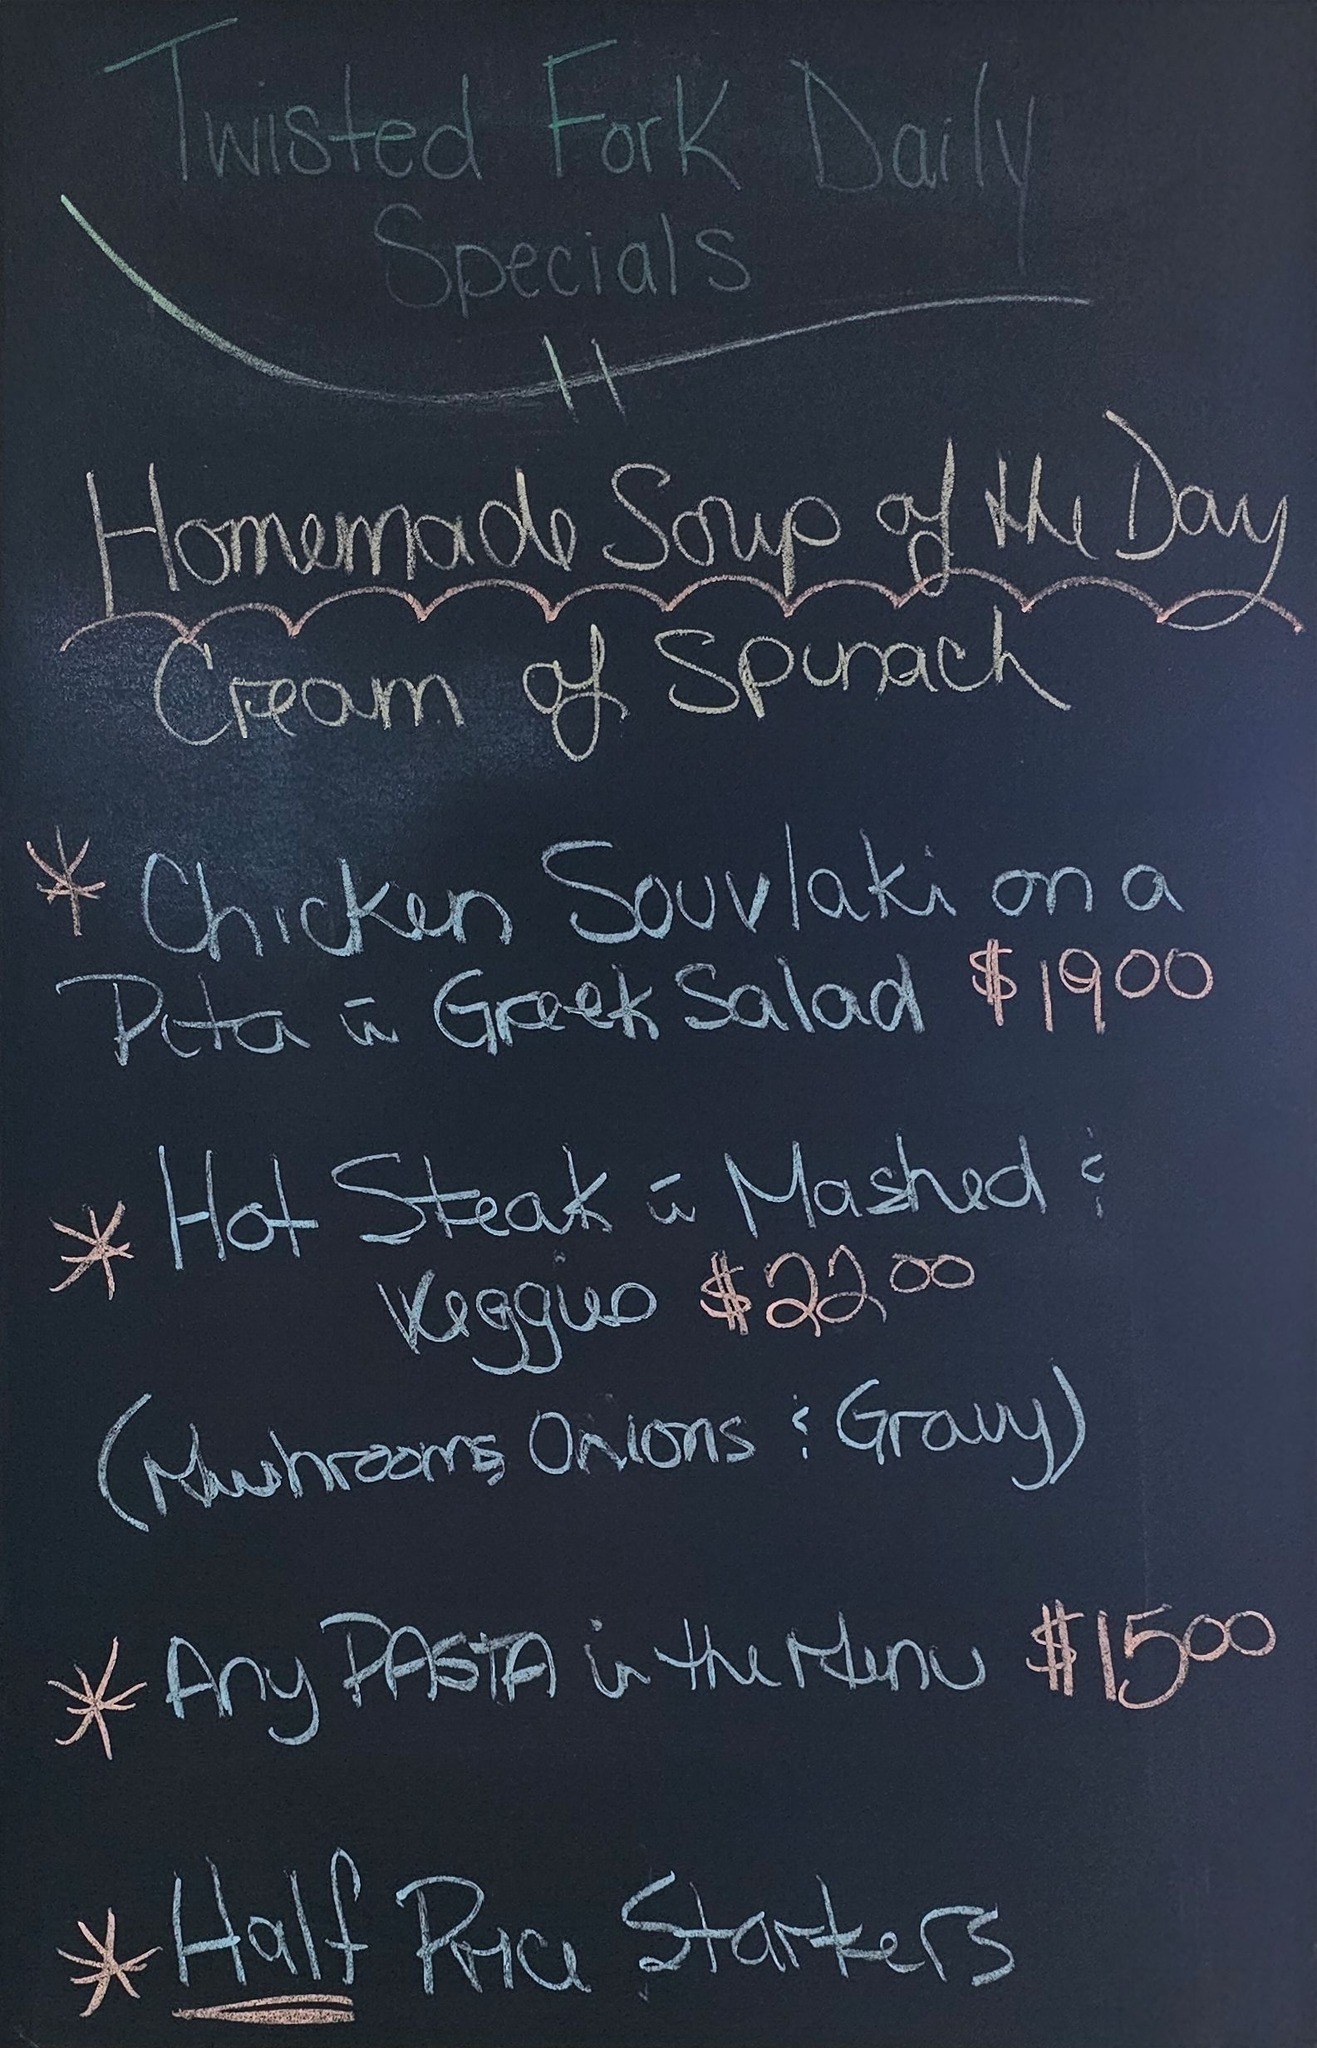 Twisted Fork Daily
Specials
Homemade Soup of the Day
Cream of Spinach
* Chicken Souvlaki on a
Pita w̄ Greek Salad $1900
* Hot Steak w̄ Mashed &
Veggies $2200
(Mushrooms, Onions & Gravy)
* Any PASTA in the Menu $1500
* Half Price Starters